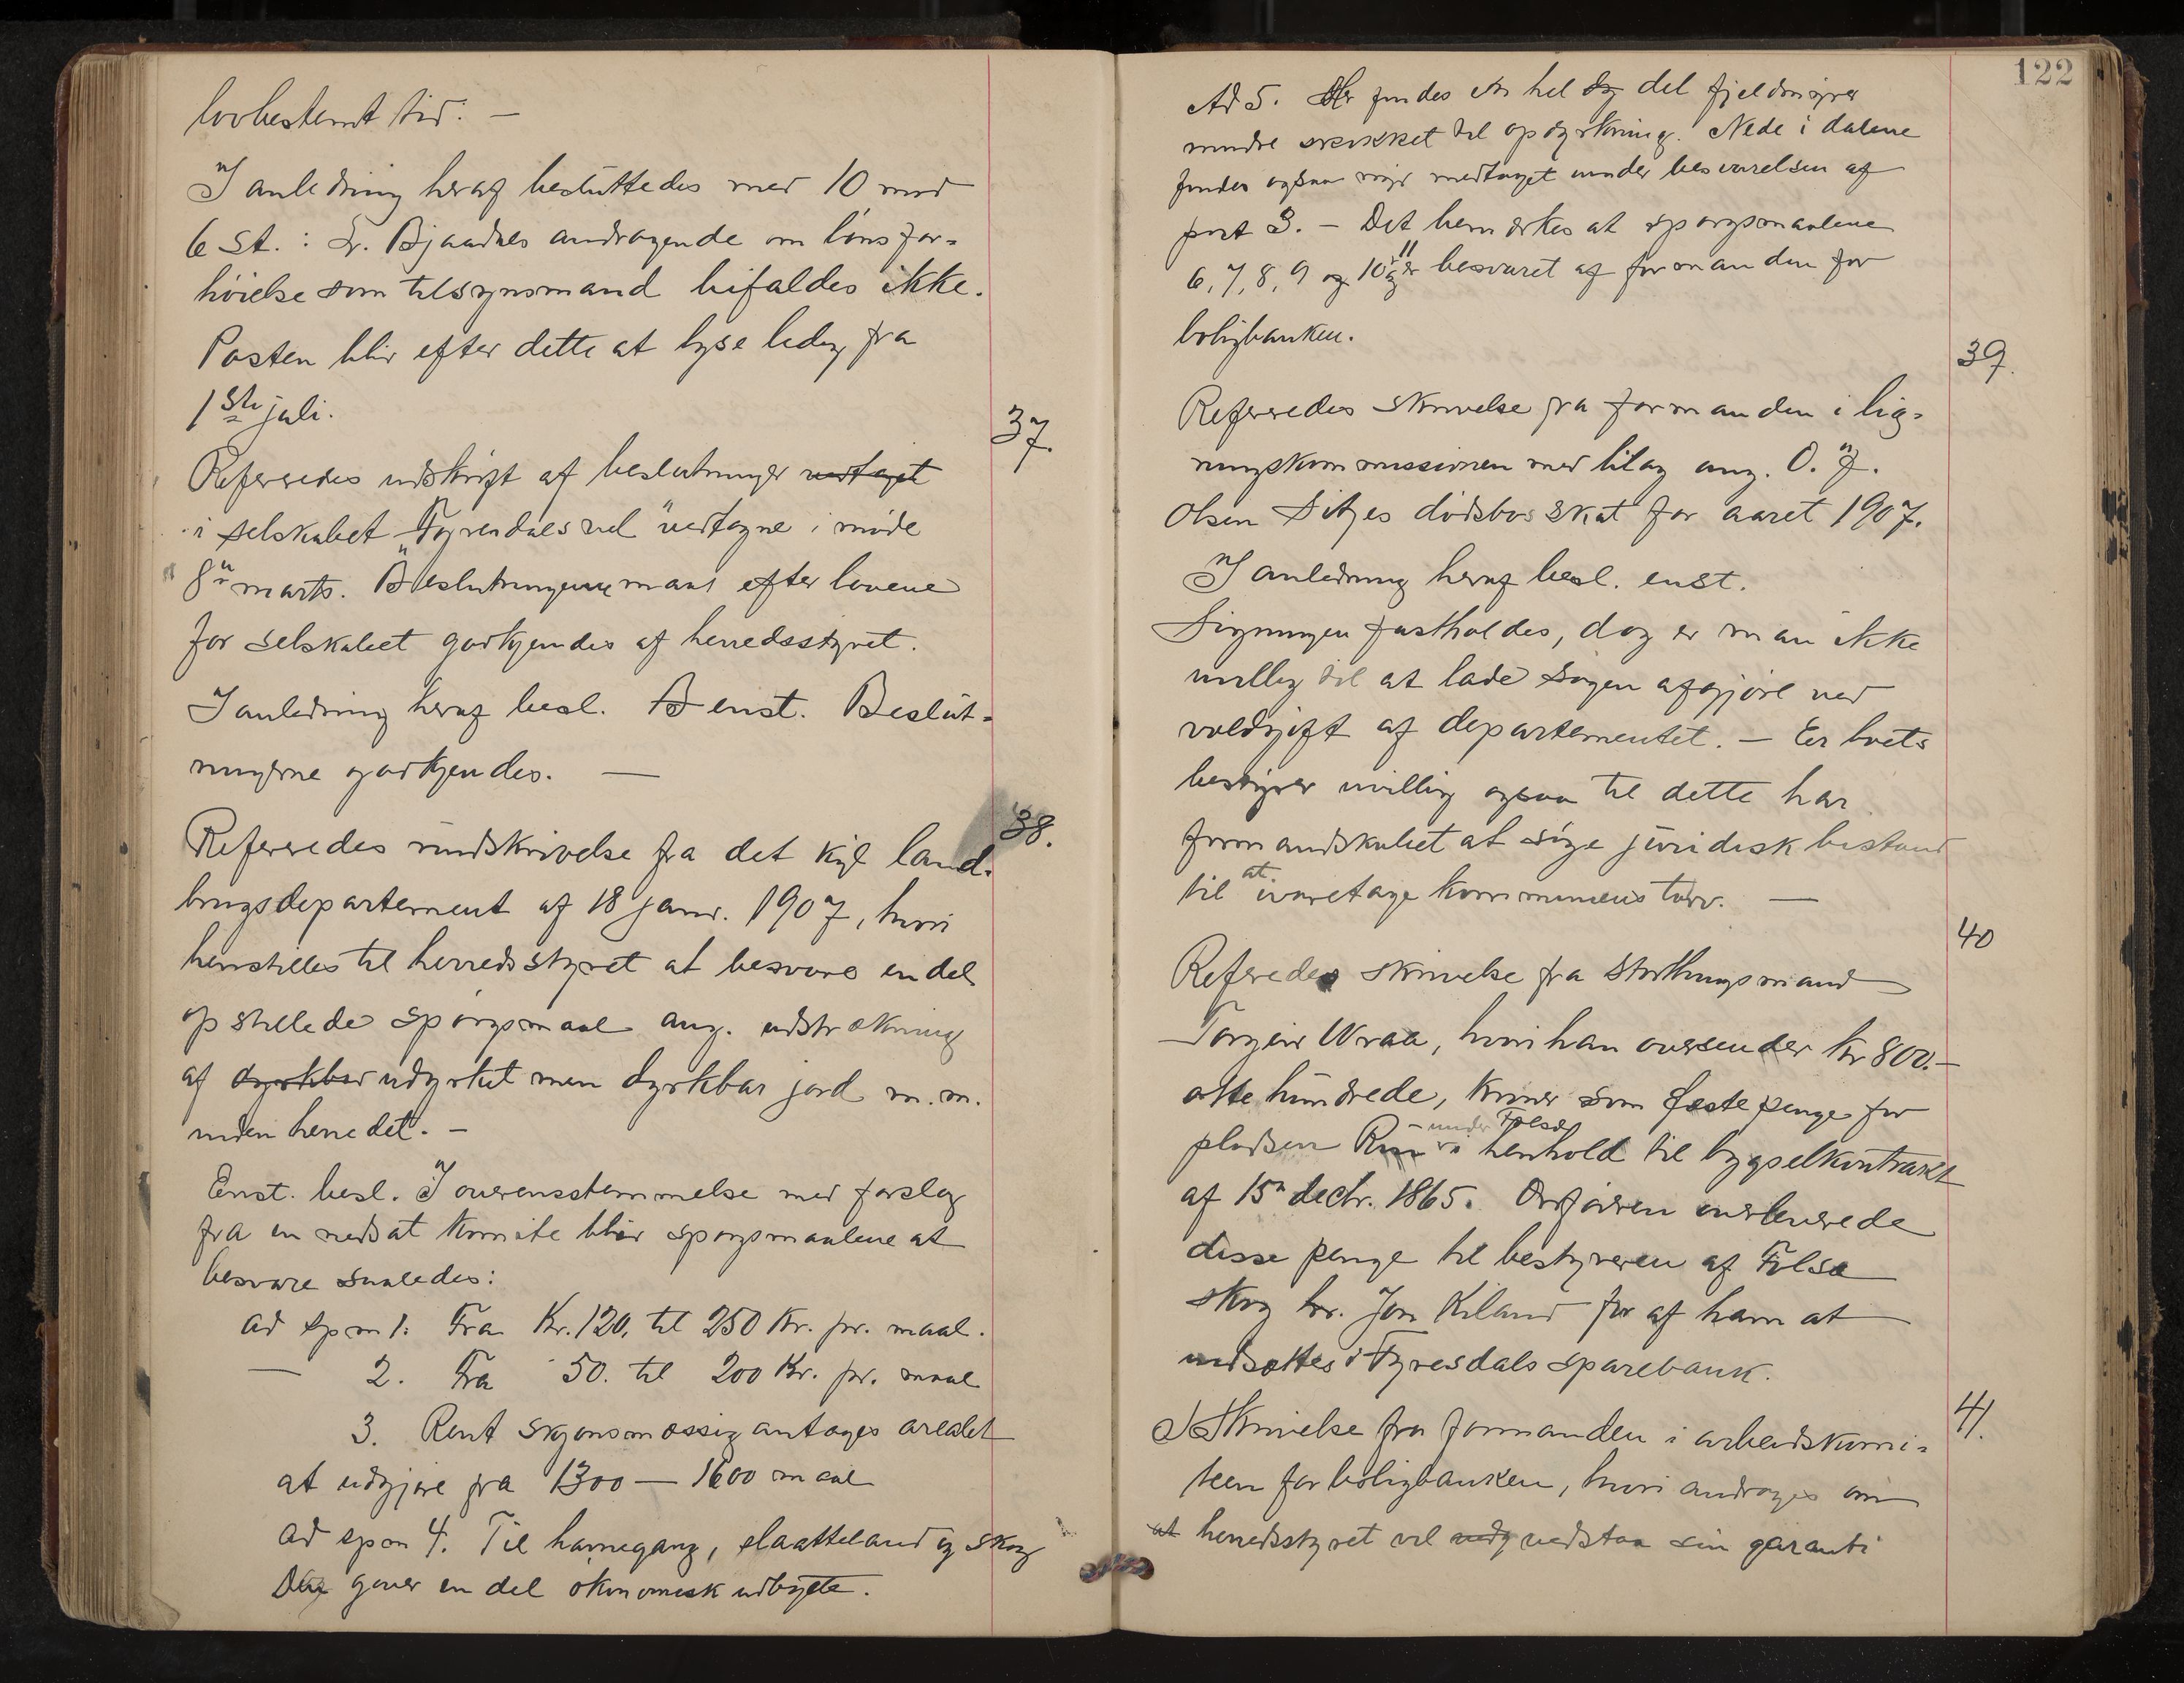 lovbestemt tid. —
I anledning heraf besluttedes med 10 mod
6 St.: Hr. Bjaadnes andragende om lönsfor-
höielse som tilsynsmand bifaldes ikke.
Posten blir efter dette at lyse ledig fra
1ste juli.
37.
Refereredes udskrift af beslutninger vedtaget
i selskabet "Fyresdals vel" vedtagne i möde
8de marts. Beslutningerne maa efter lovene
for selskabet godkjendes af herredsstyret.
I anledning heraf besl. enst. Beslut-
ningerne godkjendes. —
38.
Refereredes rundskrivelse fra det kgl land-
brugsdepartement af 18 janr. 1907, hvori
henstilles til herredsstyret at besvare en del
opstillede spörgsmaal ang. udstrækning
af dyrkbar udyrket men dyrkbar jord m.m.
inden herredet. —
Enst. besl. I overensstemmelse med forslag
fra en nedsat komite blir spörgsmaalene at
besvare saaledes:
ad spm 1: Fra Kr. 120, til 250 Kr. pr. maal.
— 2. Fra 50. til 200 Kr. pr. maal
3. Rent skjönsmæssig antages arealet
at udgjöre fra 1300 — 1600 maal
Ad spm 4. Til havnegang, slaatteland og skog
giver en del ökonomisk udbytte.
122
Ad 5. Her findes en hel del fjeldmyrer
mindre skikket til opdyrkning. Nede i dalene
findes ogsaa myr medtaget under besvarelsen af
post 3. — Det bemærkes at spörgsmaalene
6, 7, 8, 9 og 10 og 11 er besvaret af formanden for
boligbanken.
39.
Refereredes skrivelse fra formanden i lig-
ningskommissionen med bilag ang. O. J.
Olsen Sitjes dödsbos skat for aaret 1907.
I anledning heraf besl. enst.
Ligningen fastholdes, dog er man ikke
uvillig til at lade sagen afgjöre ved
voldgift af departementet. — Er boets
bestyrer uvillig ogsaa til dette har
formandskabet at söge juridisk bistand
til at ivaretage kommunens tarv. —
40
Refereredes skrivelse fra Storthingsmand
Torgeir Vraa, hvori han oversender kr 800.—
otte hundrede, kroner som fæstepenge for
pladsen under Folsæ i henhold til bygselkontrakt
af 15de decbr. 1865. Ordföreren overleverede
disse penge til bestyreren af Folsæ
skog hr. Jon Kiland for af ham at
indsættes i Fyresdals sparebank.
41.
Skrivelse fra formanden i arbeidskomi-
teen for boligbanken, hvori andrages om
at herredsstyret vil vedg vedstaa sin garanti